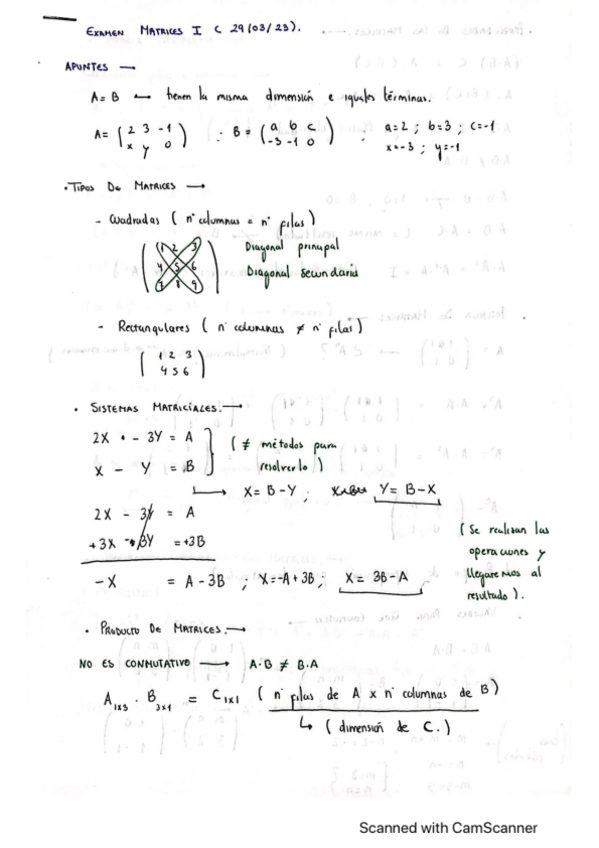 EXAMEN MATRICES I C 29(03/23).
APUNTES →
A = B ⟷ tienen la misma dimensión e iguales términos.
A = ( 2 3 -1 ; B = ( a b c ; a=2 ; b=3 ; c=-1
x y 0 ) -3 -1 0 ) x=-3 ; y=-1
• TIPOS DE MATRICES →
- Cuadradas ( nº columnas = nº filas )
( 1 2 3 Diagonal principal
4 5 6 Diagonal secundaria
7 8 9 )
- Rectangulares ( nº columnas ≠ nº filas )
( 1 2 3
4 5 6 )
• SISTEMAS MATRICIALES. →
2X - 3Y = A ( ≠ métodos para
X - Y = B resolverlo )
→ X = B - Y ; Y = B - X
2X - 3Y = A ( Se realizan las
+3X 3Y = +3B operaciones y
-X = A - 3B ; X = -A + 3B ; X = 3B - A llegaremos al
resultado ).
• PRODUCTO DE MATRICES. →
NO ES CONMUTATIVO → A·B ≠ B·A
A1x3 · B3x1 = C1x1 ( nº filas de A x nº columnas de B )
↳ ( dimensión de C. )
Scanned with CamScanner